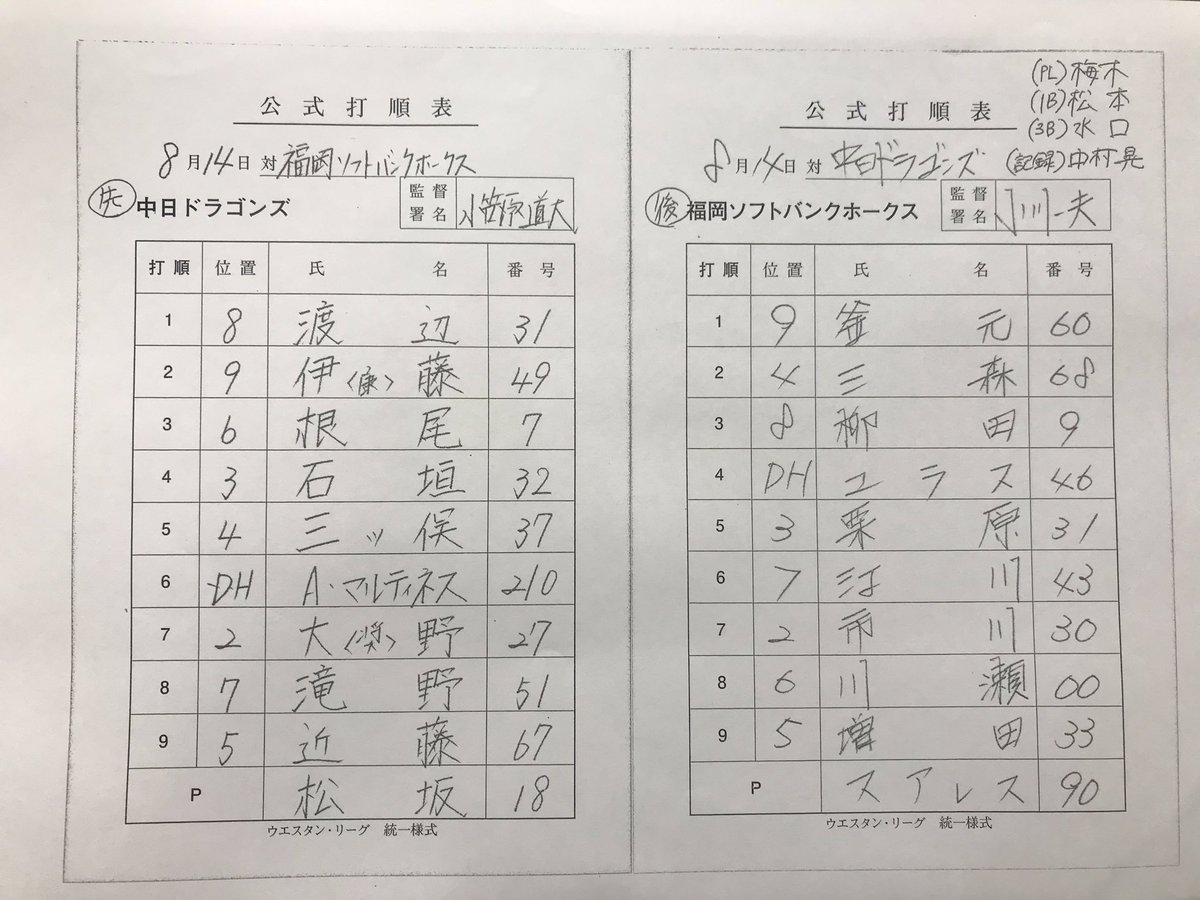 公式打順表
8月14日 対 福岡ソフトバンクホークス
先 中日ドラゴンズ 監督署名 小笠原道大
打順 位置 氏名 番号
1 8 渡辺 31
2 9 伊〈康〉藤 49
3 6 根尾 7
4 3 石垣 32
5 4 三ッ俣 37
6 DH A・マルティネス 210
7 2 大〈奨〉野 27
8 7 滝野 51
9 5 近藤 67
P 松坂 18
ウエスタン・リーグ 統一様式
(PL)梅木
(1B)松本
(3B)水口
(記録)中村晃
公式打順表
8月14日 対 中日ドラゴンズ
後 福岡ソフトバンクホークス 監督署名 小川一夫
打順 位置 氏名 番号
1 9 釜元 60
2 4 三森 68
3 8 柳田 9
4 DH コラス 46
5 3 栗原 31
6 7 江川 43
7 2 市川 30
8 6 川瀬 00
9 5 増田 33
P スアレス 90
ウエスタン・リーグ 統一様式